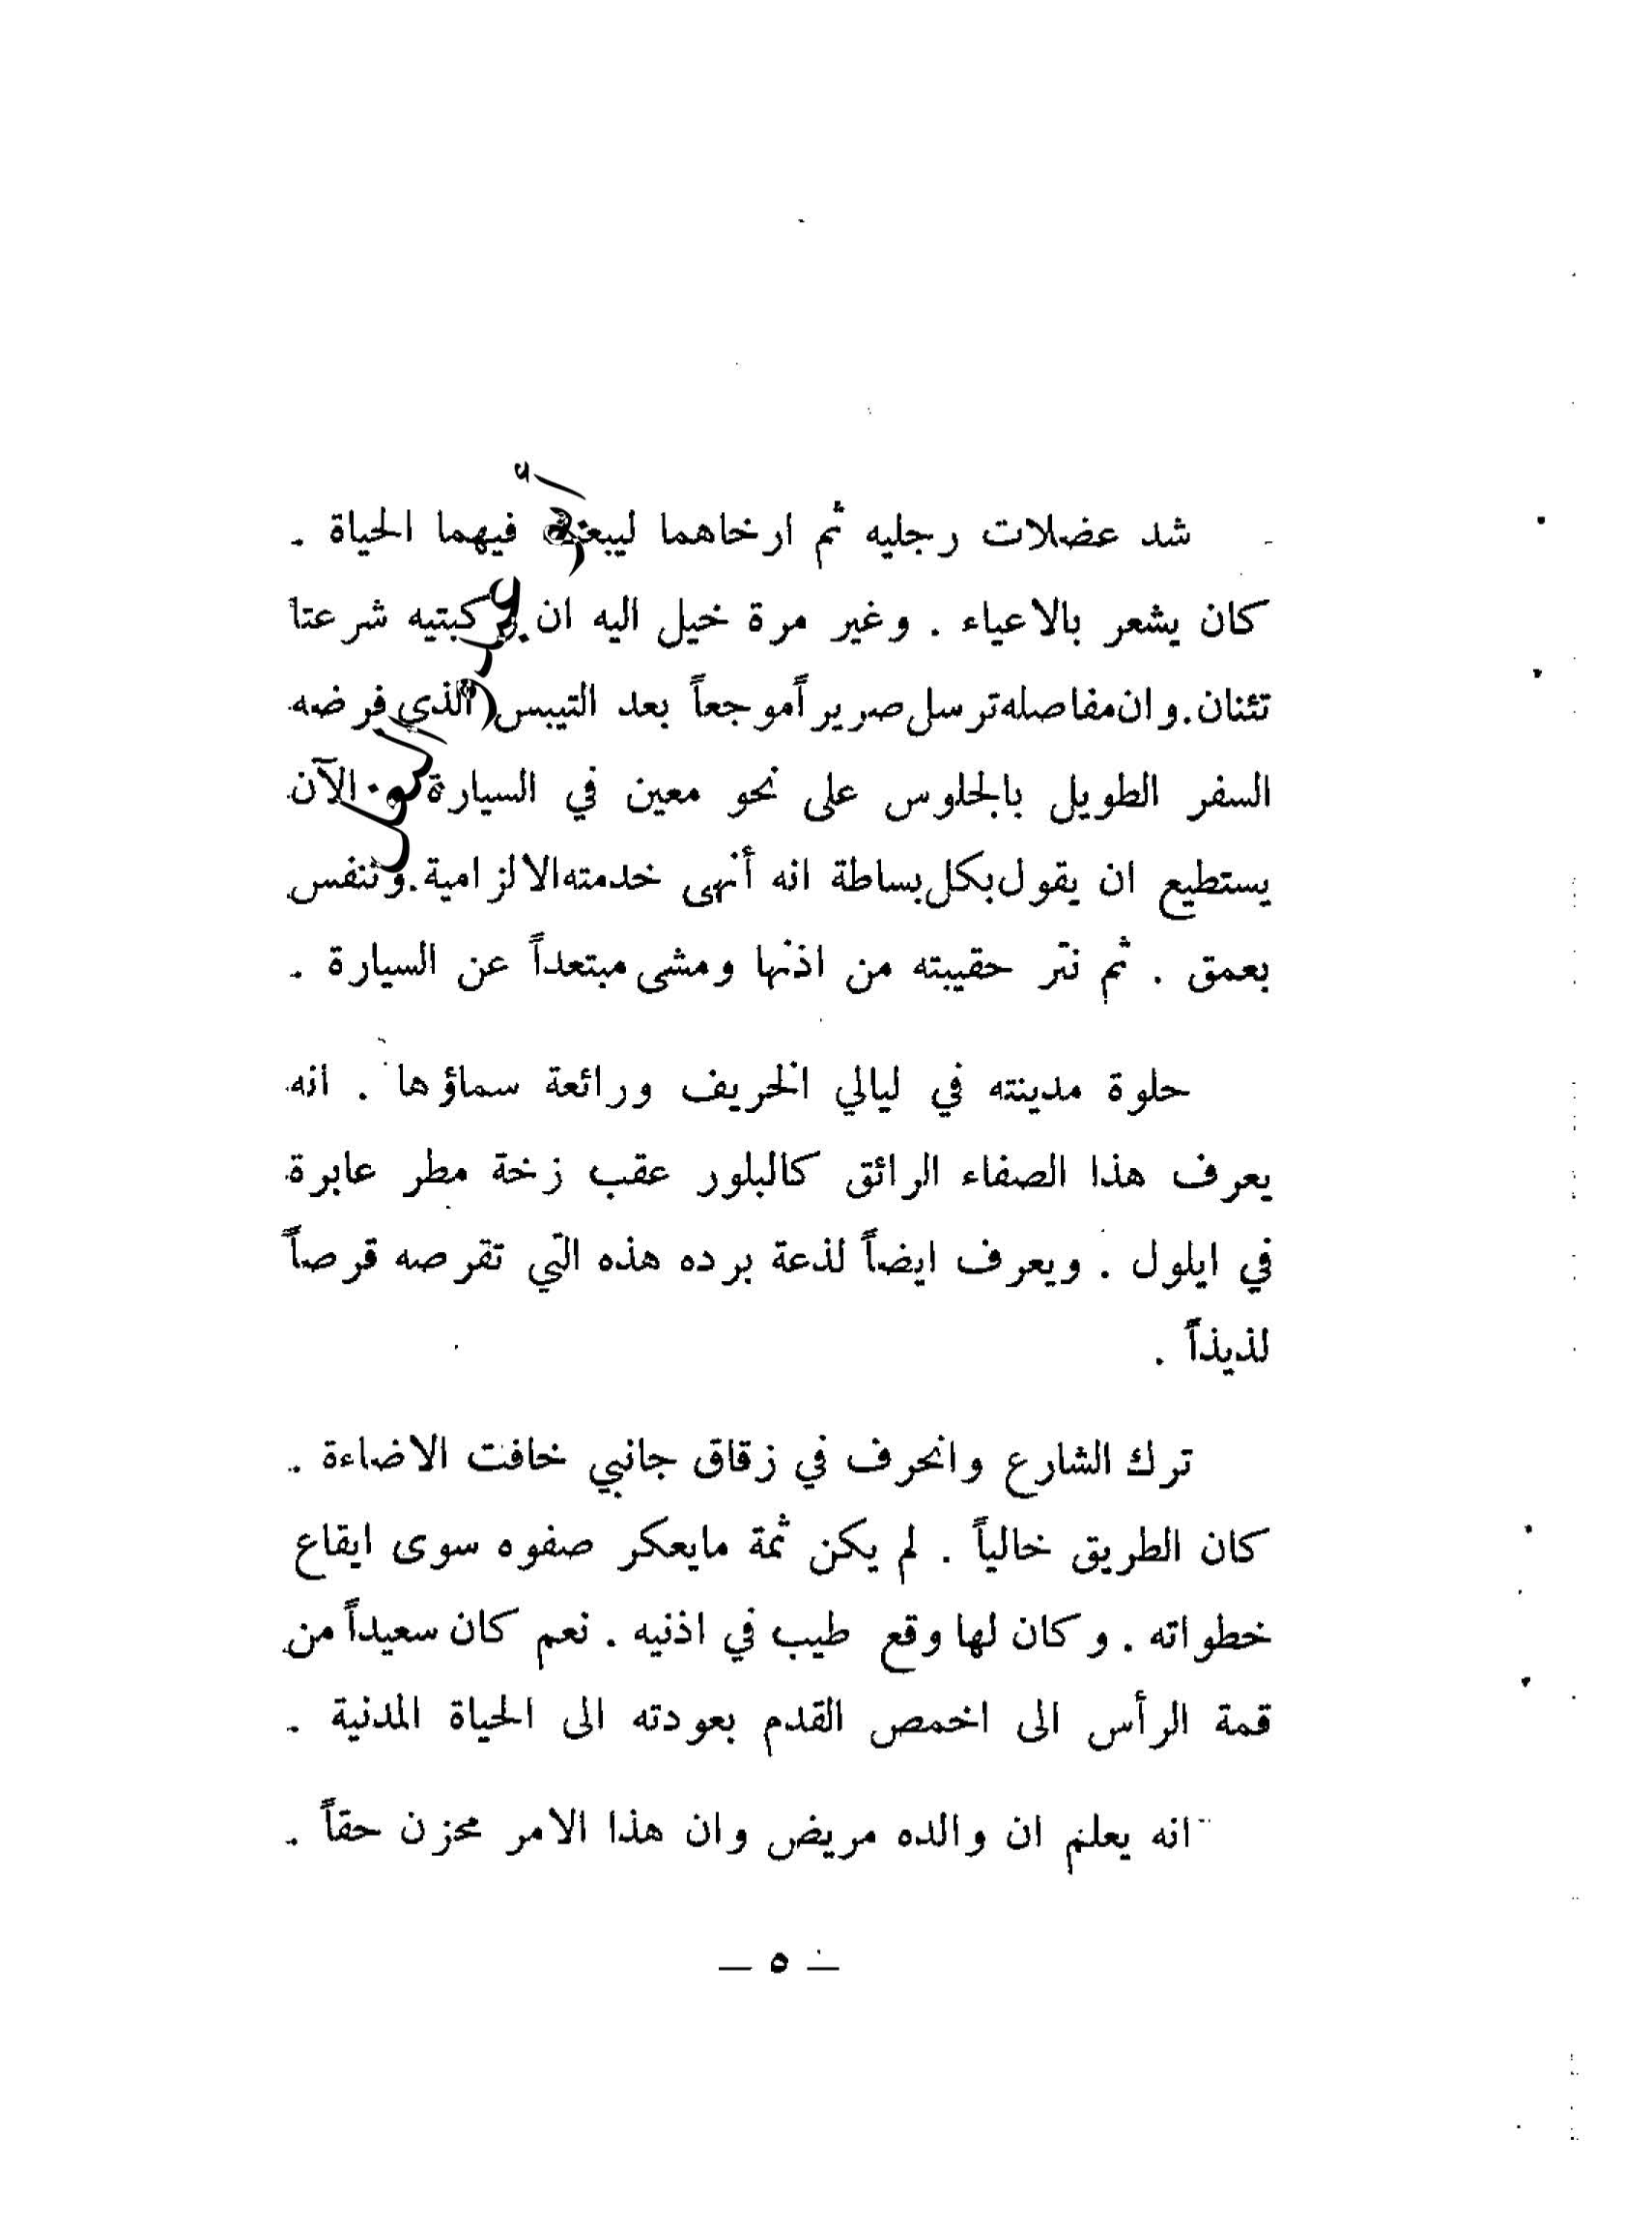 شد عضلات رجليه ثم ارخاهما ليبعث فيهما الحياة .
كان يشعر بالاعياء . وغير مرة خيل اليه ان ركبتيه شرعتا
تئنان . وان مفاصله ترسل صريراً موجعاً بعد التيبس الذي فرضه
السفر الطويل بالجلوس على نحو معين في السيارة . الآن
يستطيع ان يقول بكل بساطة انه أنهى خدمته الالزامية . وتنفس
بعمق . ثم نتر حقيبته من اذنها ومشى مبتعداً عن السيارة .
حلوة مدينته في ليالي الخريف ورائعة سماؤها . انه
يعرف هذا الصفاء الرائق كالبلور عقب زخة مطر عابرة
في ايلول . ويعرف ايضاً لذعة برده هذه التي تقرصه قرصاً
لذيذاً .
ترك الشارع وانحرف في زقاق جانبي خافت الاضاءة .
كان الطريق خالياً . لم يكن ثمة مايعكر صفوه سوى ايقاع
خطواته . وكان لها وقع طيب في اذنيه . نعم كان سعيداً من
قمة الرأس الى اخمص القدم بعودته الى الحياة المدنية .
انه يعلم ان والده مريض وان هذا الامر محزن حقاً .
— ٥ —